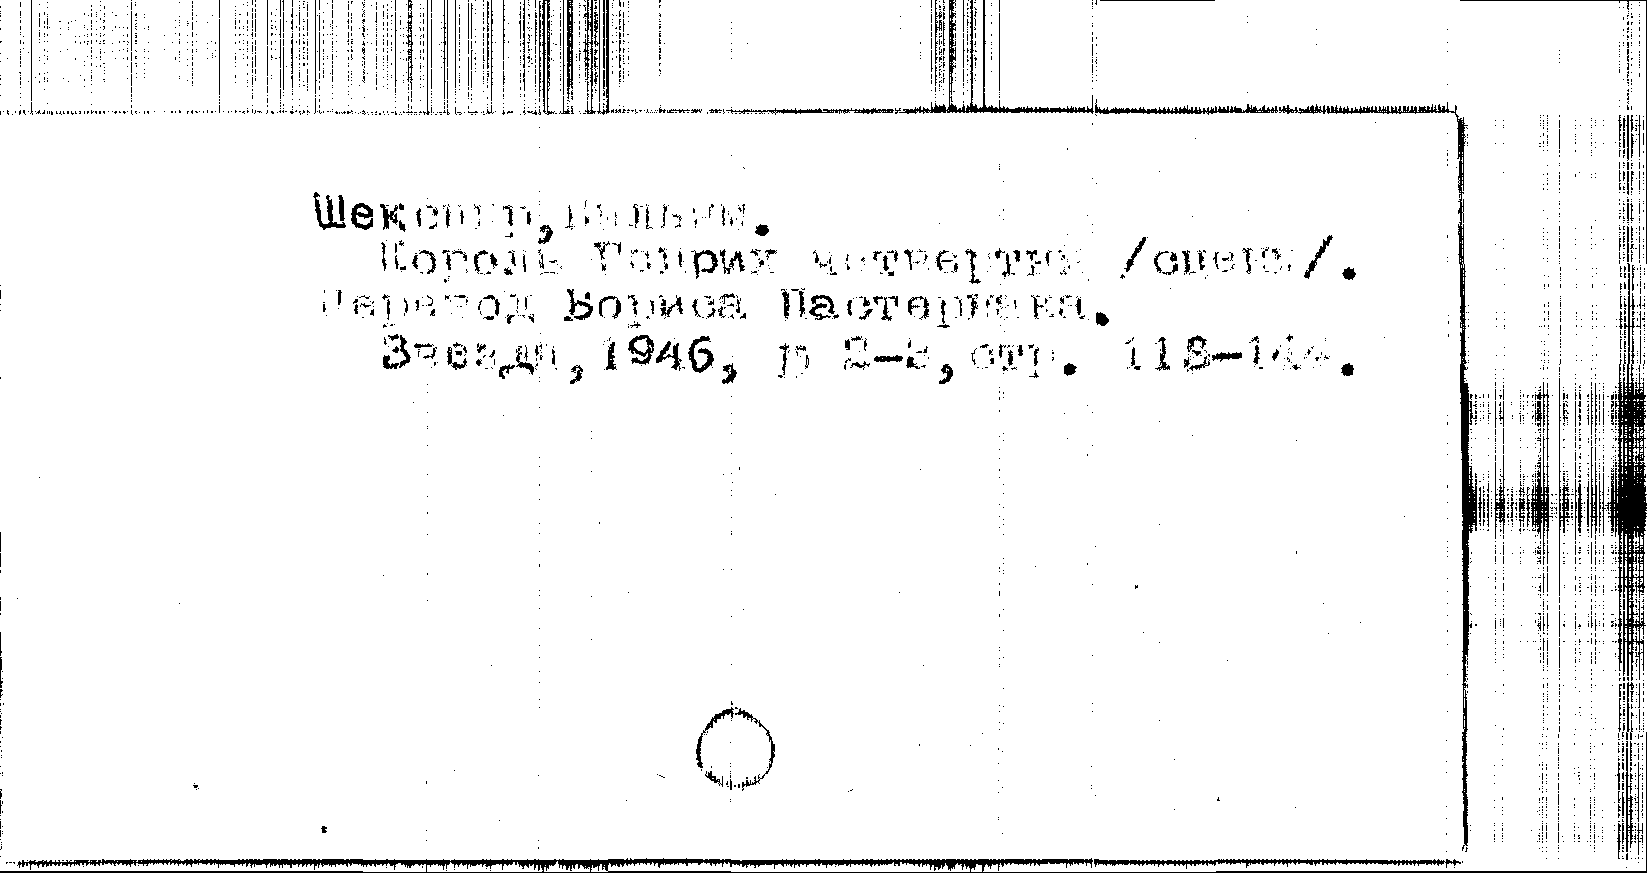 Шекспир,Вильям.
Король Генрих четвертый /сцены/.
Перевод Бориса Пастернака.
Звезда,1946, № 2-3,стр. 118-144.